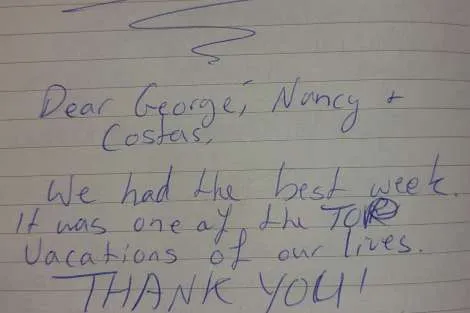 Dear George, Nancy +
Costas,
We had the best week.
It was one of the TOP
Vacations of our lives.
THANK YOU!